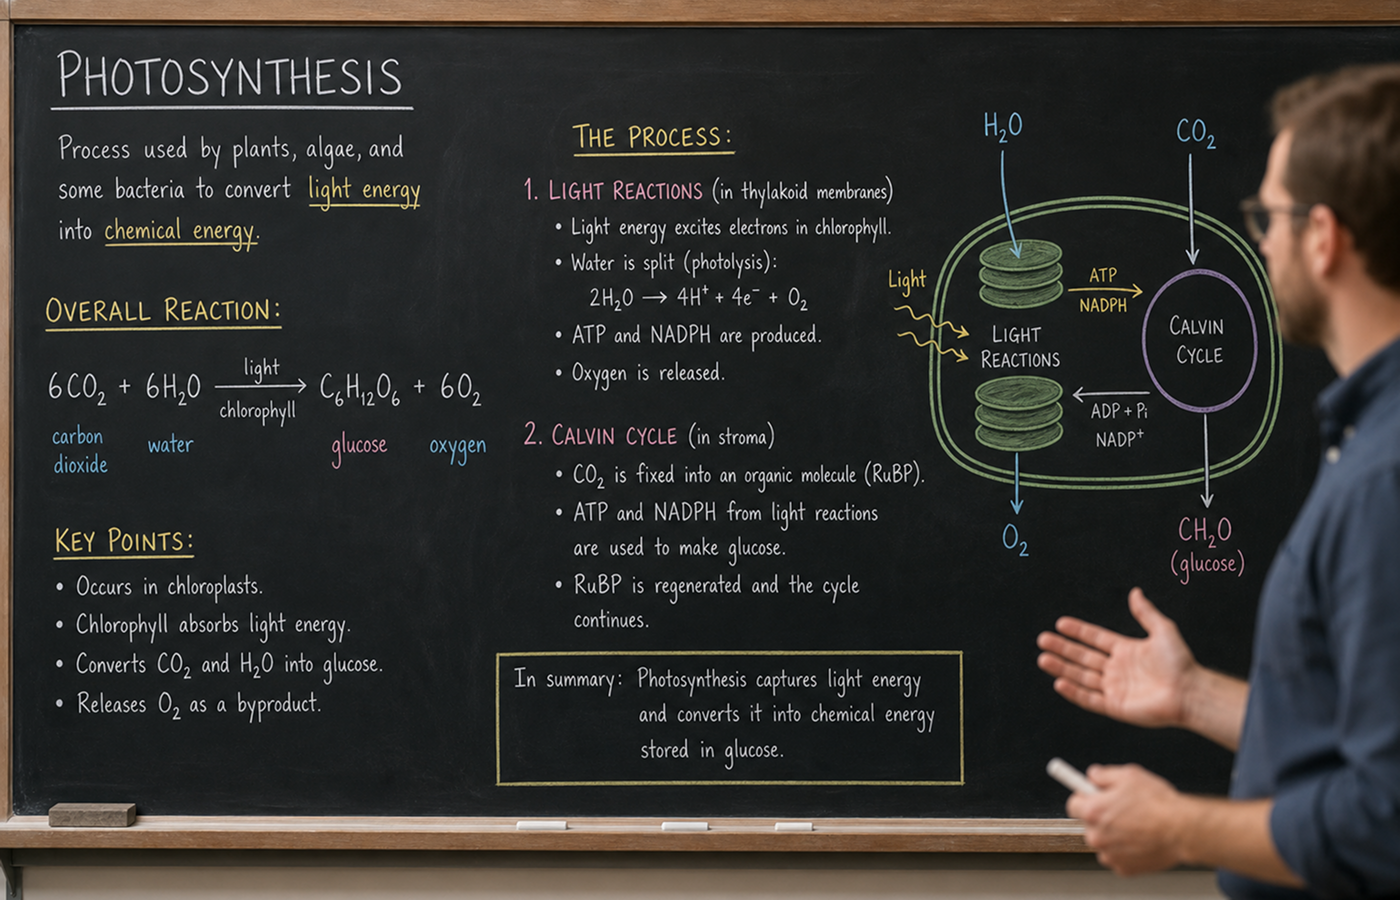 PHOTOSYNTHESIS
Process used by plants, algae, and
some bacteria to convert light energy
into chemical energy.
OVERALL REACTION:
6CO₂ + 6H₂O light chlorophyll → C₆H₁₂O₆ + 6O₂
carbon dioxide water glucose oxygen
KEY POINTS:
• Occurs in chloroplasts.
• Chlorophyll absorbs light energy.
• Converts CO₂ and H₂O into glucose.
• Releases O₂ as a byproduct.
THE PROCESS:
1. LIGHT REACTIONS (in thylakoid membranes)
• Light energy excites electrons in chlorophyll.
• Water is split (photolysis):
2H₂O → 4H⁺ + 4e⁻ + O₂
• ATP and NADPH are produced.
• Oxygen is released.
2. CALVIN CYCLE (in stroma)
• CO₂ is fixed into an organic molecule (RuBP).
• ATP and NADPH from light reactions
are used to make glucose.
• RuBP is regenerated and the cycle
continues.
In summary: Photosynthesis captures light energy
and converts it into chemical energy
stored in glucose.
H₂O
CO₂
Light
ATP
NADPH
LIGHT
REACTIONS
CALVIN
CYCLE
ADP + Pi
NADP⁺
O₂
CH₂O
(glucose)